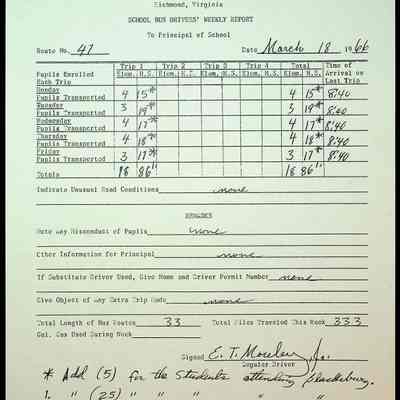 Richmond, Virginia
SCHOOL BUS DRIVERS' WEEKLY REPORT
To Principal of School
Route No. 47 Date March 18, 1966
Trip 1 Trip 2 Trip 3 Trip 4 Total Time of
Pupils Enrolled Elem. H.S. Elem. H.S. Elem. H.S. Elem. H.S. Elem. H.S. Arrival on
Each Trip Last Trip
Monday
Pupils Transported 4 15* 4 15* 8:40
Tuesday
Pupils Transported 3 19* 3 19* 8:40
Wednesday
Pupils Transported 4 17* 4 17* 8:40
Thursday
Pupils Transported 4 18* 4 18* 8:40
Friday
Pupils Transported 3 17* 3 17* 8:40
Totals 18 86 18 86
Indicate Unusual Road Conditions none
REMARKS
Note Any Misconduct of Pupils none
Other Information for Principal none
If Substitute Driver Used, Give Name and Driver Permit Number none
Give Object of Any Extra Trip Made none
Total Length of Bus Routes 33 Total Miles Traveled This Week 333
Gal. Gas Used During Week
Signed E. T. Mosley, Jr.
Regular Driver
* Add (5) for the students attending Blacksburg.
1. " (25) " " " " "